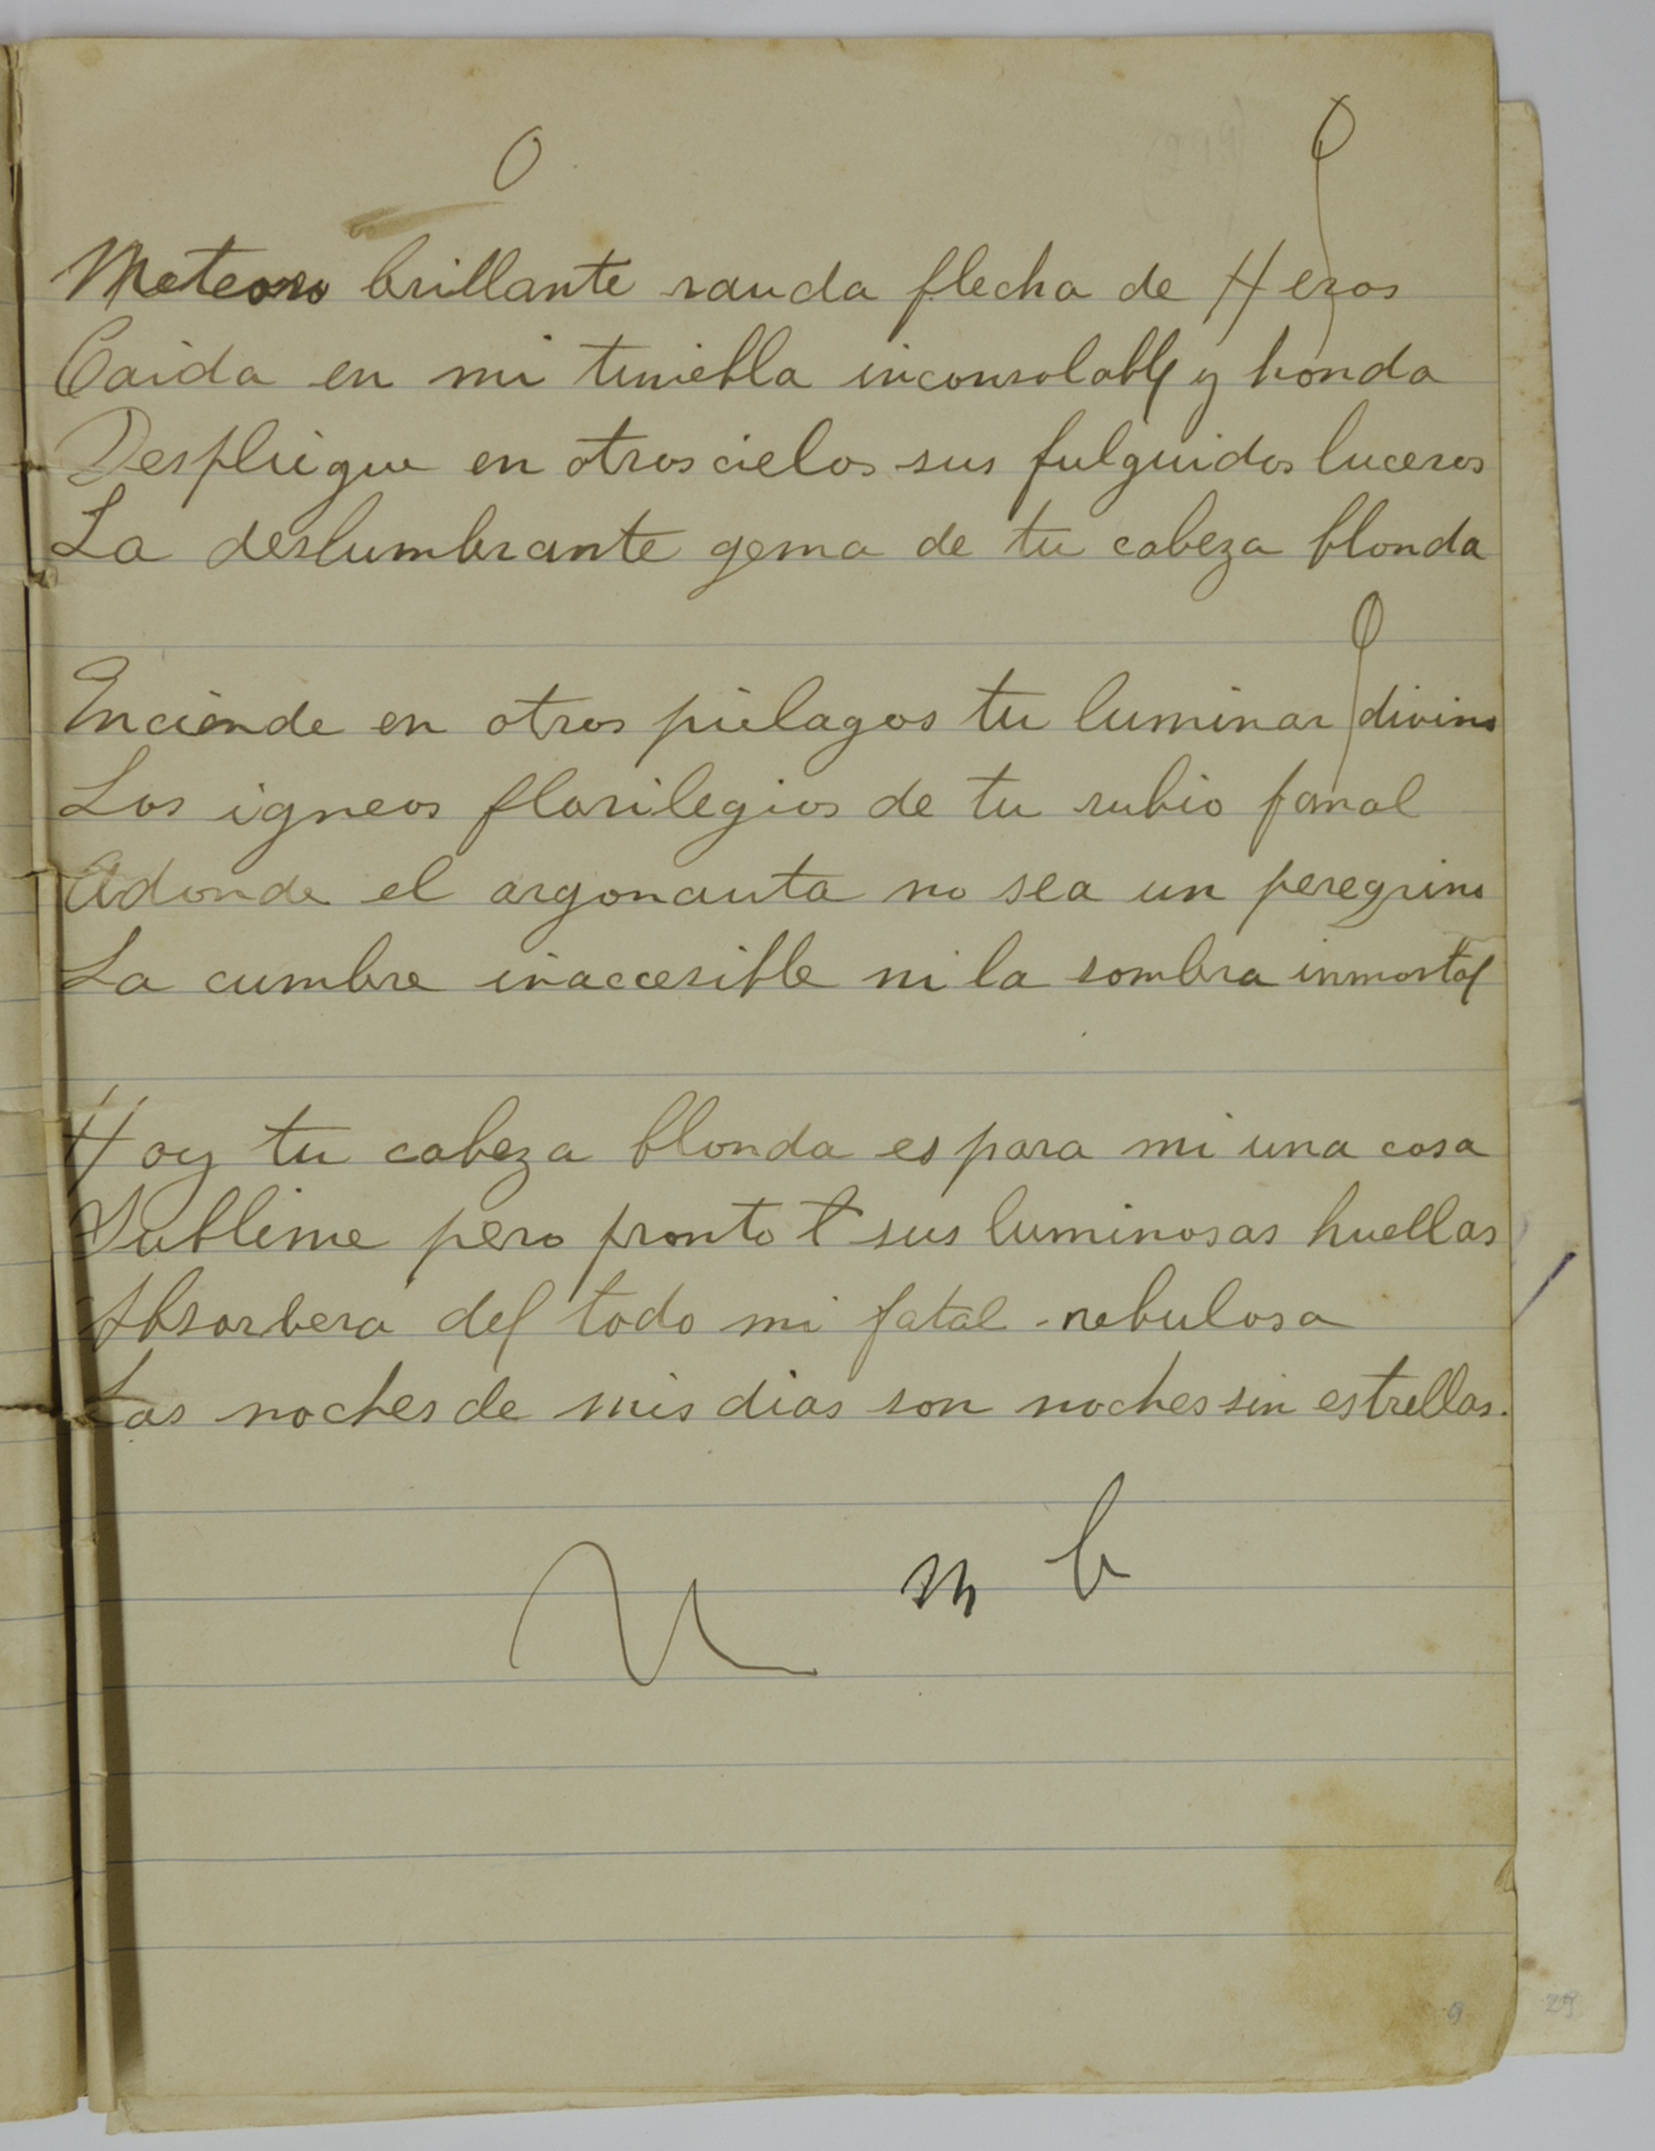 Meteoro brillante rauda flecha de Heros
Caida en mi tiniebla inconsolable y honda
Despliegue en otros cielos sus fulguidos luceros
La deslumbrante gema de tu cabeza blonda
Enciende en otros pielagos tu luminar divino
Los igneos florilegios de tu rubio fanal
Adonde el argonauta no sea un peregrino
La cumbre inaccesible ni la sombra inmortal
Hoy tu cabeza blonda es para mi una cosa
Sublime pero pronto t sus luminosas huellas
Absorbera del todo mi fatal nebulosa
Las noches de mis dias son noches sin estrellas.
m b
9
29